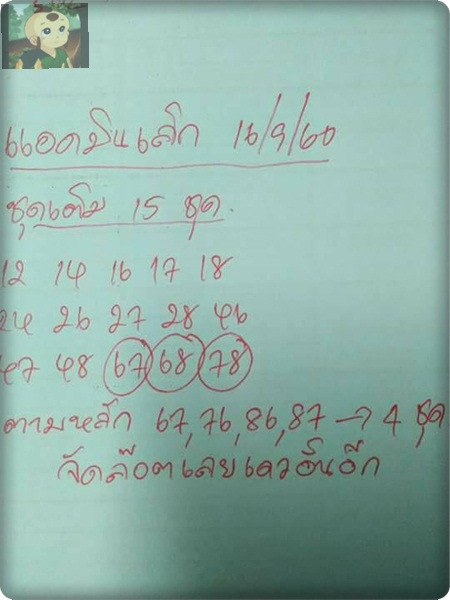 แอดมินเล็ก 16/9/60
ชุดเต็ม 15 ชุด.
12 14 16 17 18
24 26 27 28 46
47 48 67 68 78
ตามหลัก 67,76,86,87 → 4 ชุด
จัดล๊อตเลยเดวอั้นอีก